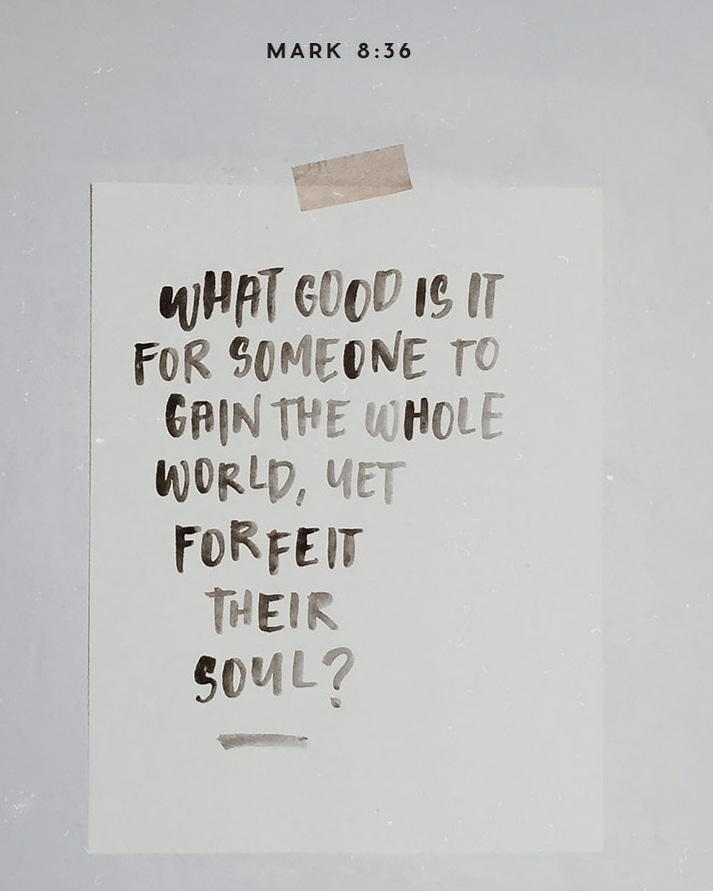 MARK 8:36
WHAT GOOD IS IT
FOR SOMEONE TO
GAIN THE WHOLE
WORLD, YET
FORFEIT
THEIR
SOUL?